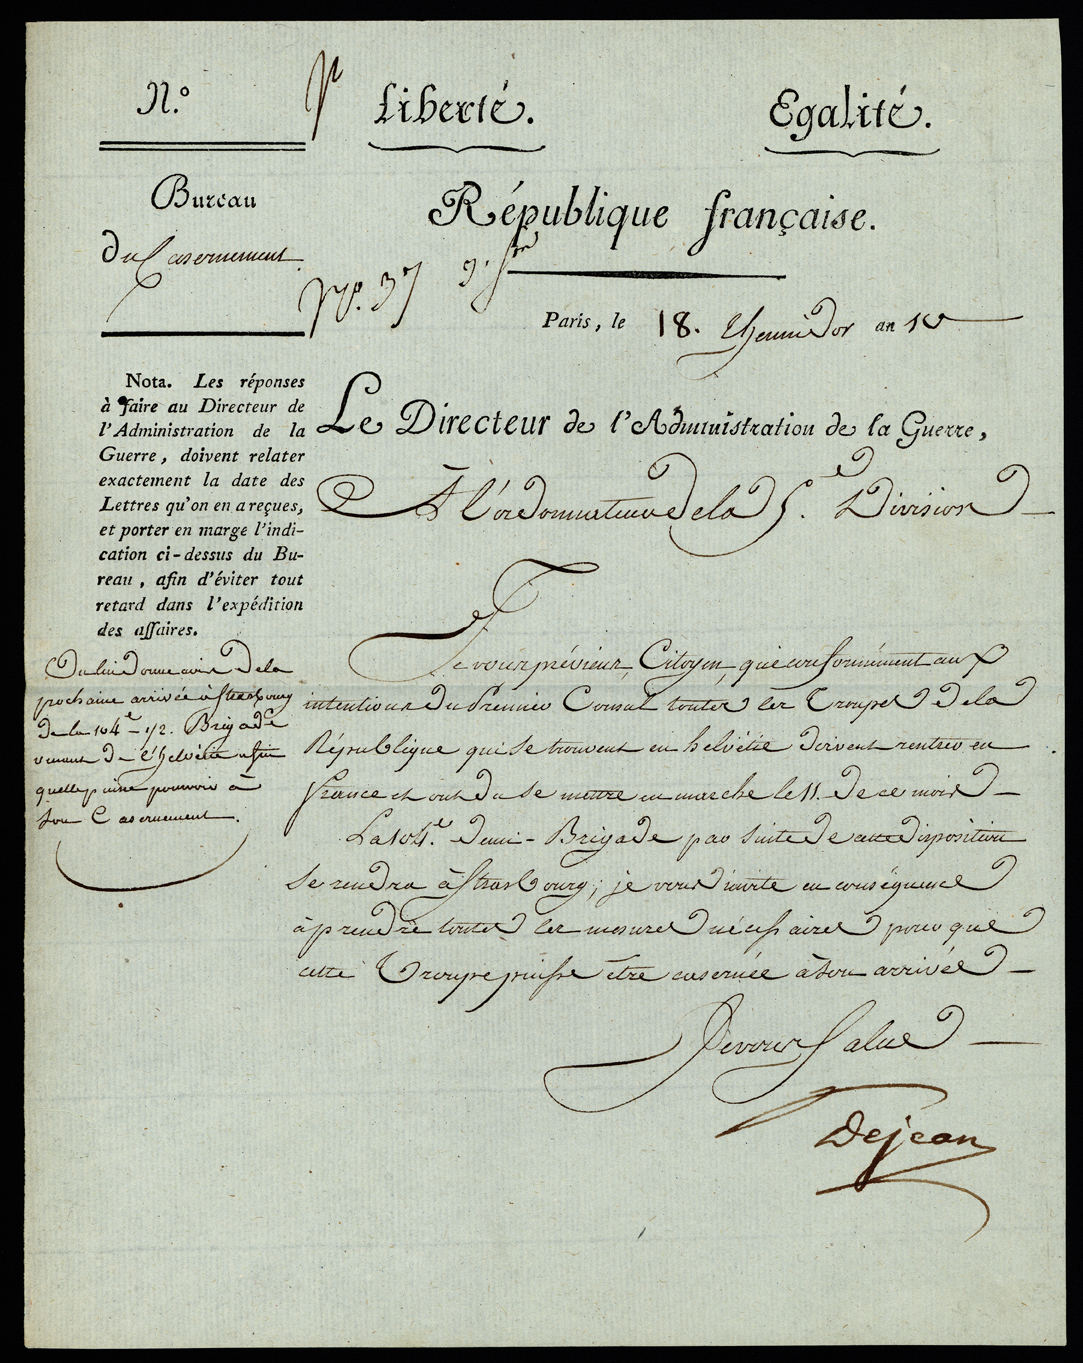 N.º
Liberté.
Egalité.
Bureau
du Casernement
République française.
Nº. 37
Paris, le 18. Thermidor an 10
Nota. Les réponses
à faire au Directeur de
l'Administration de la
Guerre, doivent relater
exactement la date des
Lettres qu'on en a reçues,
et porter en marge l'indi-
cation ci-dessus du Bu-
reau, afin d'éviter tout
retard dans l'expédition
des affaires.
On lui donne avis de la
prochaine arrivée à Strasbourg
de la 104e 1/2. Brigade
venant de l'helvétie afin
quelle puisse pourvoir à
son Casernement.
Le Directeur de l'Administration de la Guerre,
A l'ordonnateur de la 5.e Division
Je vous préviens, Citoyen, que conformément aux
intentions du Premier Consul toutes les Troupes de la
République qui se trouvent en helvétie doivent rentrer en
france et ont du se mettre en marche le 11. de ce mois
La 104.e demi-Brigade par suite de cette disposition
se rendra à Strasbourg; je vous invite en conséquence
à prendre toutes les mesures nécessaires pour que
cette Troupe puisse être casernée à son arrivée
Je vous salue
Dejean